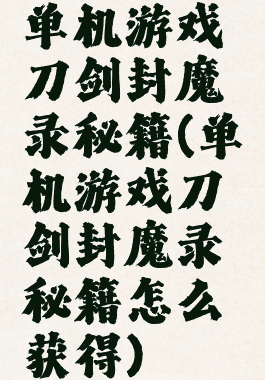 单机游戏
刀剑封魔
录秘籍(单
机游戏刀
剑封魔录
秘籍怎么
获得)